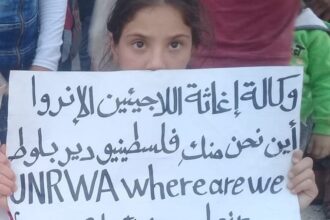 وكالة إغاثة اللاجئين الإنروا
أين نحن منك فلسطينيو دير بلوط
UNRWA where are we